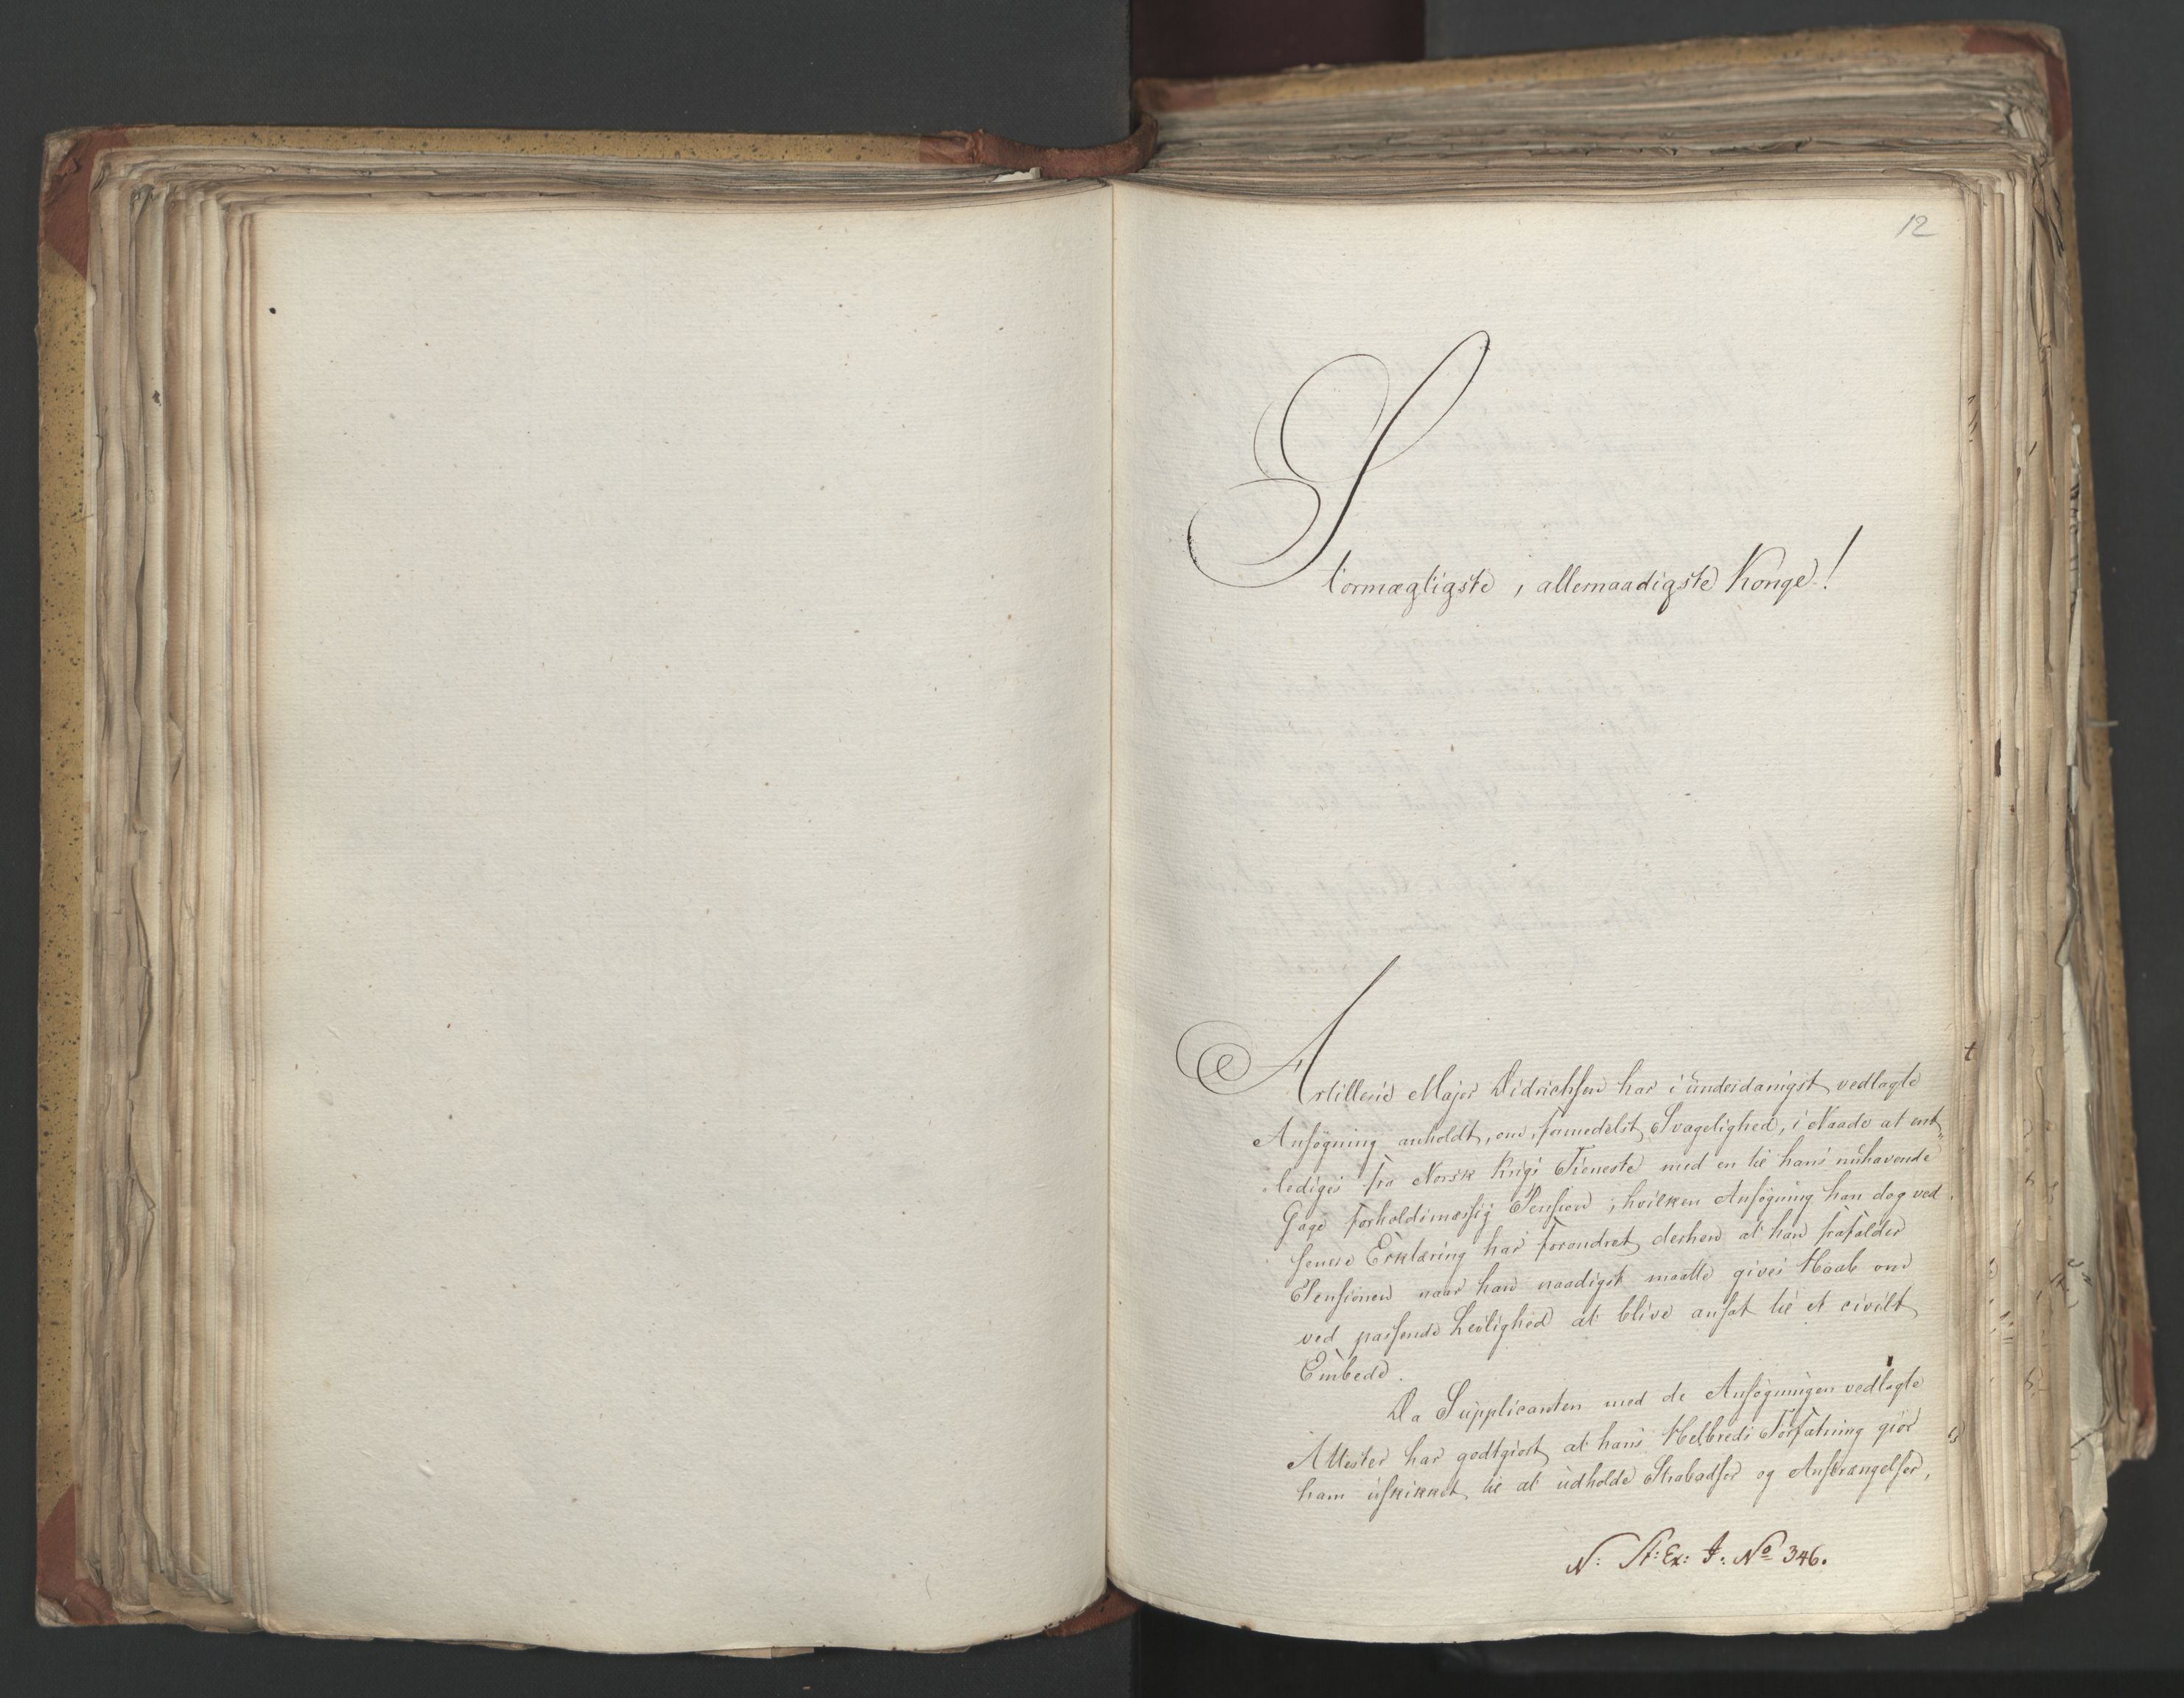 12
Stormægtigste, allernaadigste Konge!
Artillerie Major Didrichsen har i underdanigst vedlagte
Ansøgning anholdt, om, formedelst Svagelighed, i Naade at ent„
lediges fra Norsk Krigs Tieneste med en til hans nuhavende
Gage forholdsmæssig Pension; hvilken Ansøgning han dog ved
senere Erklæring har forandret derhen at han frafalder
Pensionen naar han naadigst maatte gives Haab om
ved passende Leilighed at blive ansat til et civilt
Embede.
Da Supplicanten med de Ansøgningen vedlagte
Attester har godtgiort at hans Helbreds Forfatning giør
ham uskikket til at udholde Strabadser og Anstrængelser,
N: St: Ex: J: No 346.